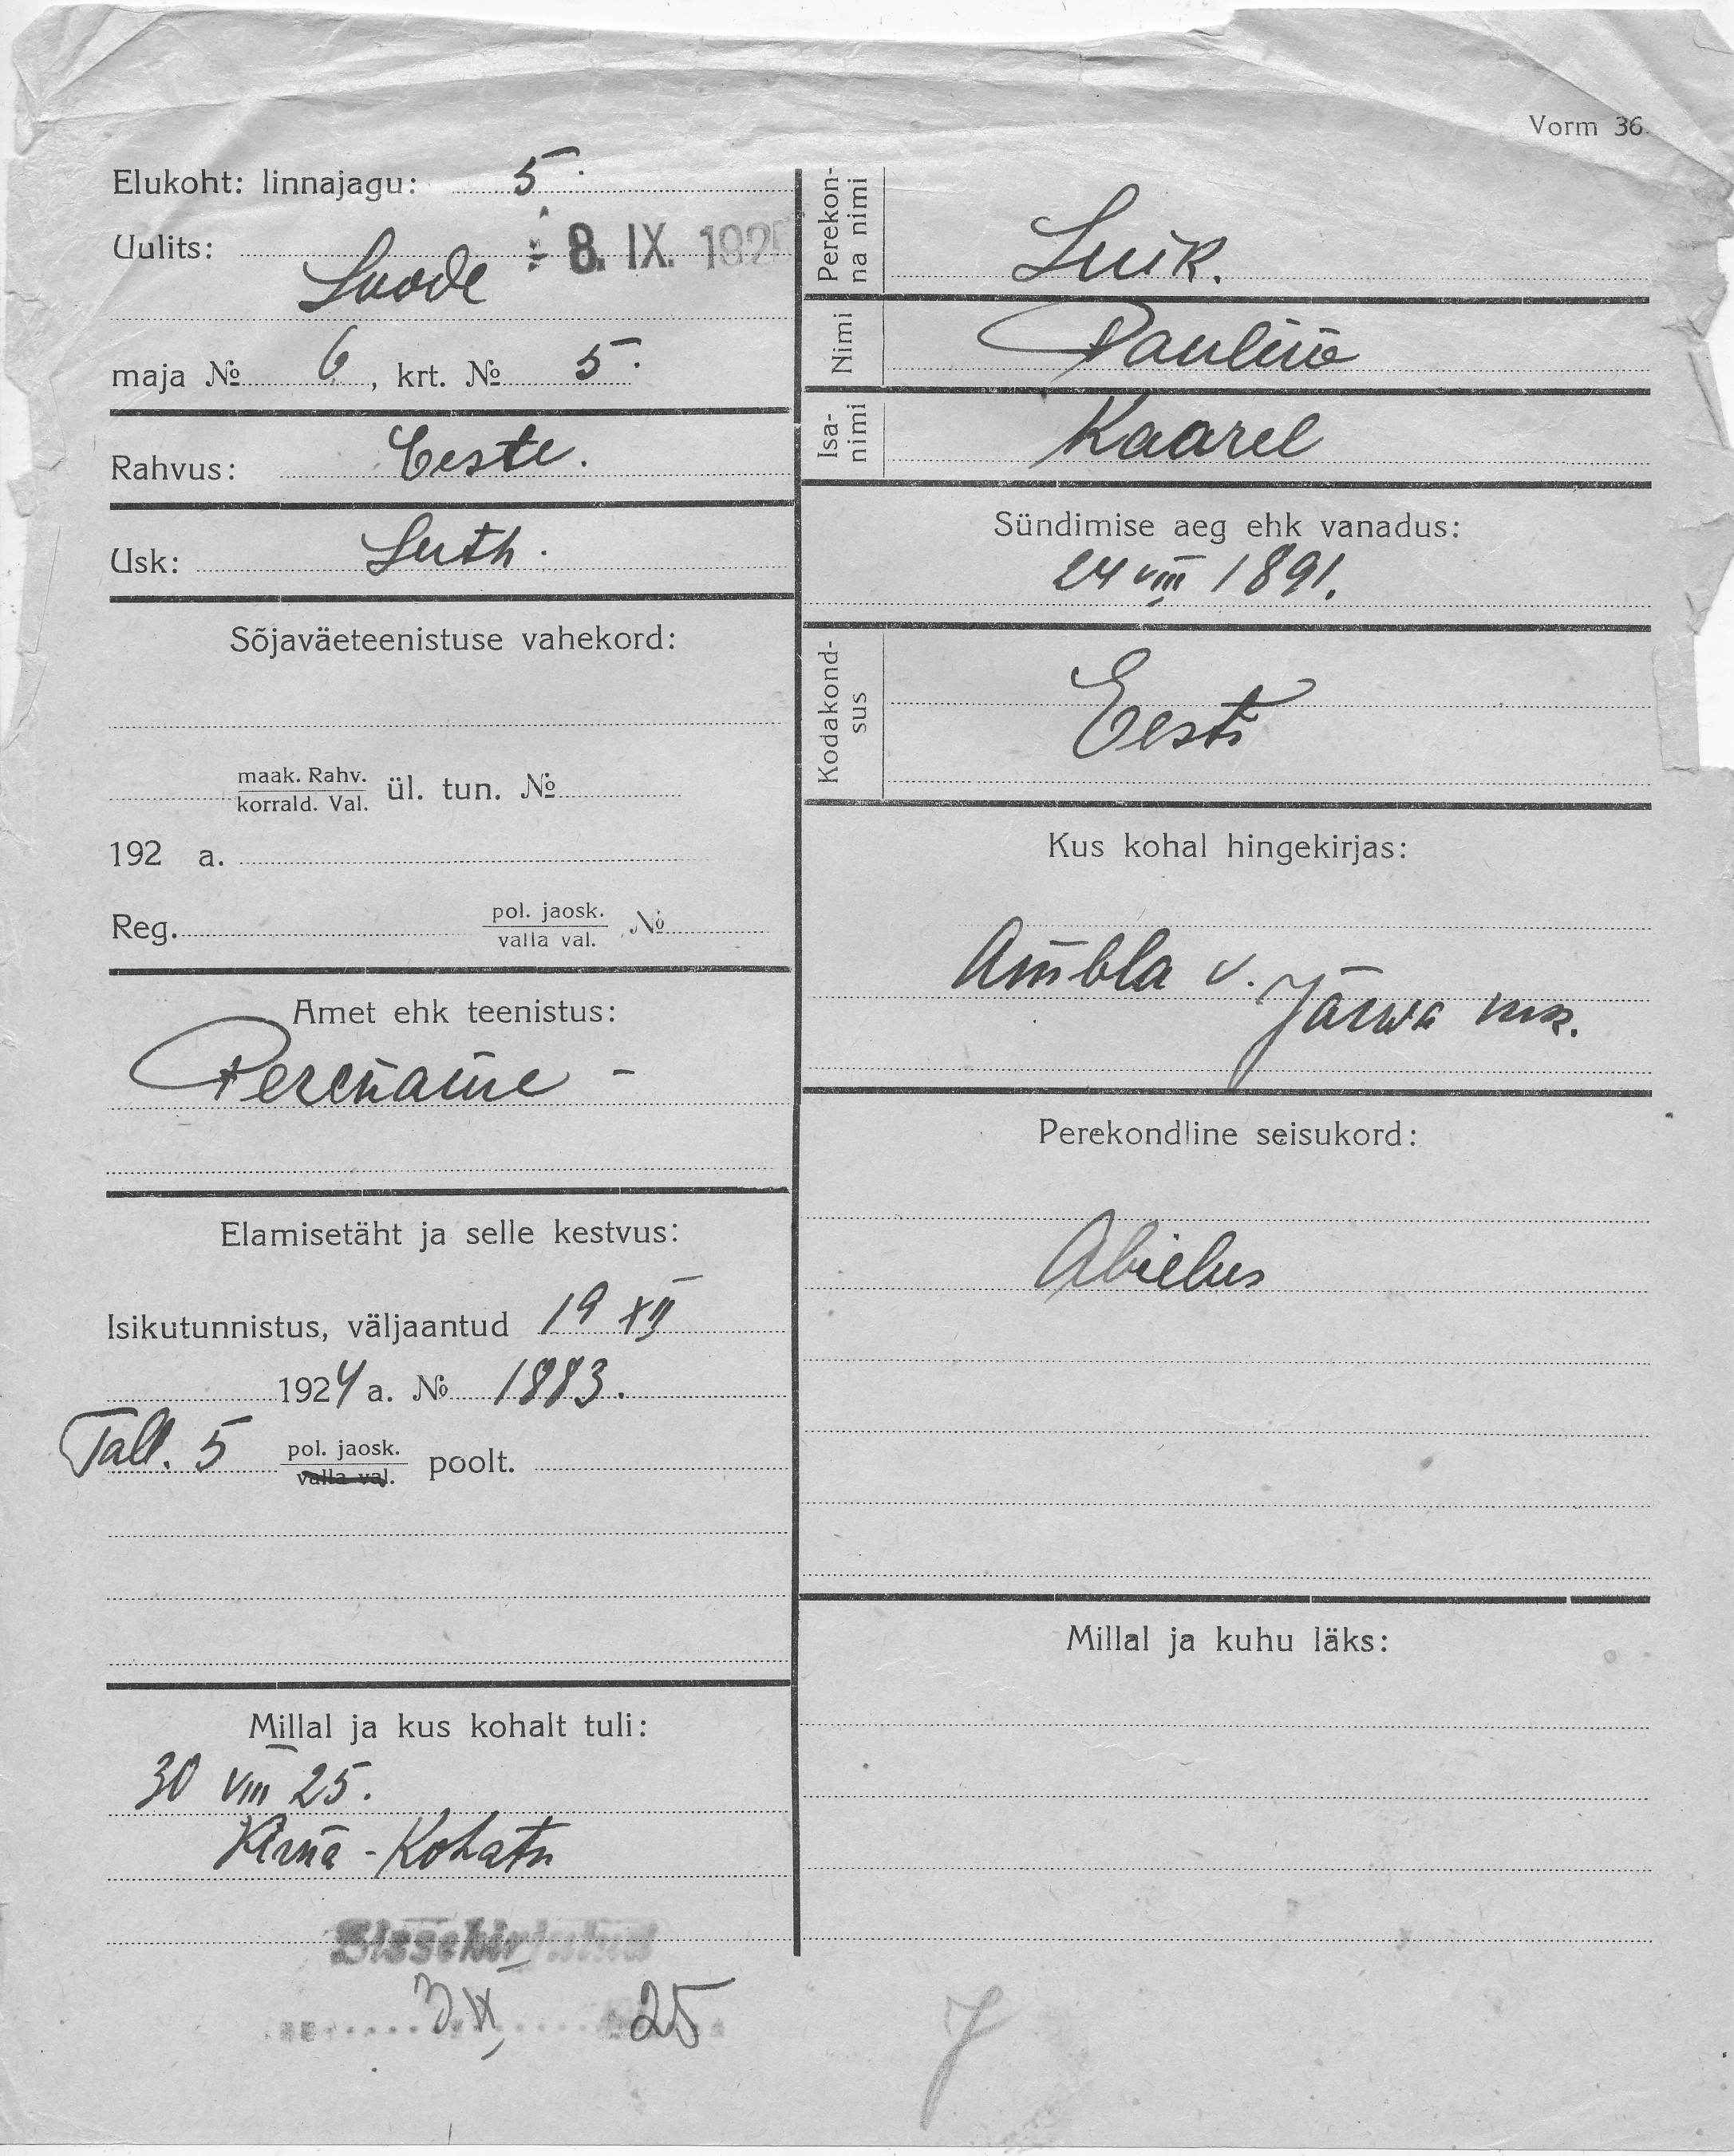 Vorm 36
Elukoht: linnajagu: 5.
Uulits: 8. IX. 192
Loode
maja № 6, krt. № 5.
Rahvus: Eeste.
Usk: Luth.
Sõjaväeteenistuse vahekord:
maak. Rahv.
korrald. Val. ül. tun. №
192 a.
Reg. pol. jaosk. №
valla val.
Amet ehk teenistus:
Perenaine -
Elamisetäht ja selle kestvus:
Isikutunnistus, väljaantud 19 XII
1924 a. № 1883.
Tall. 5 pol. jaosk. poolt.
valla val.
Millal ja kus kohalt tuli:
30 VIII 25.
Kohatu
Sissekirjutud
3 IX 25
Perekon-
na nimi Luik.
Nimi Pauline
Isa-
nimi Kaarel
Sündimise aeg ehk vanadus:
24 VIII 1891.
Kodakond-
sus Eesti
Kus kohal hingekirjas:
Ambla v.
Järwa mk.
Perekondline seisukord:
Abielus
Millal ja kuhu läks: